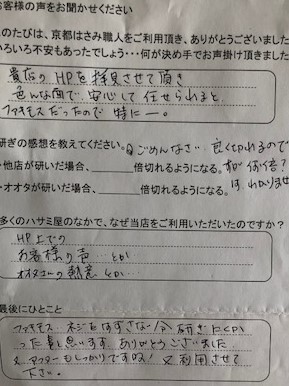 お客様の声をお聞かせください
このたびは、京都はさみ職人をご利用頂き、ありがとうございました
いろいろ不安もあったでしょう・・・何が決め手でお声掛け頂けました
貴店の HPを拝見させて頂き
色んな面で 安心して 任せられると
だったので 特にー。
研ぎの感想を教えてください。
ごめんなさい 良く切れるので
・他店が研いだ場合、＿＿＿倍切れるようになる。すが 何倍?
・オオタが研いだ場合、＿＿＿倍切れるようになる。は わかりませ
多くのハサミ屋のなかで、なぜ当店をご利用いただいたのですか?
HP上での
お客様の声…とか
の熱意とか…
最後にひとこと
ネジもはずさない 研ぎ
った ありがとうございました
又、アフターもしっかりですね! 又利用させて
下さい。